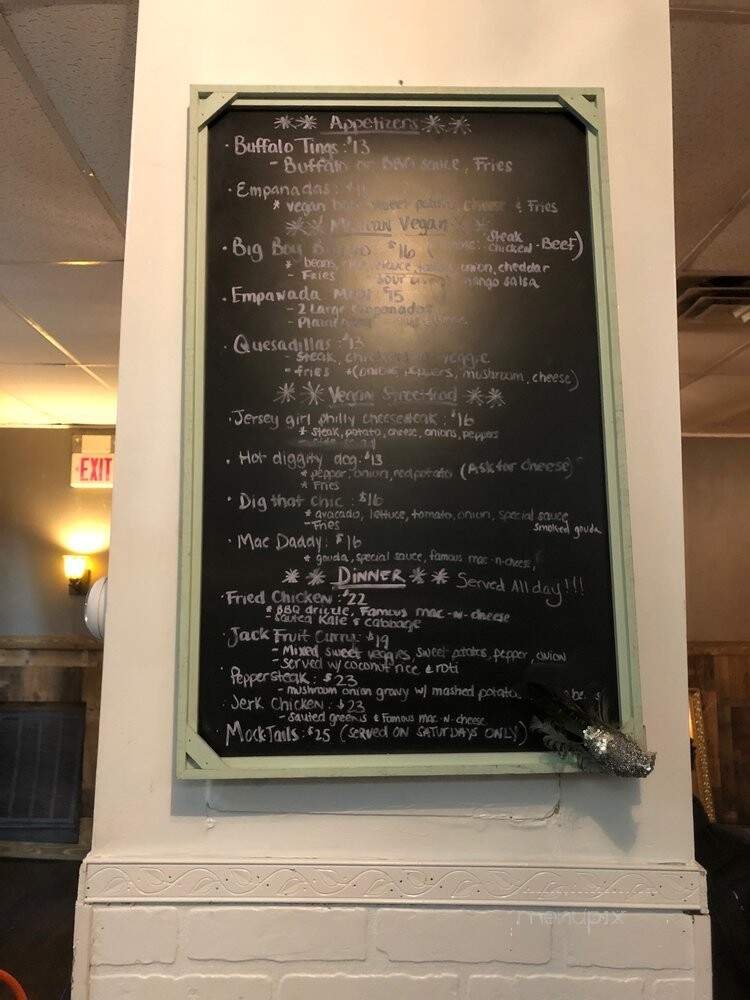 Appetizers
· Buffalo Tings: $13
- Buffalo or BBQ sauce, Fries
· Empanadas:
* vegan sweet potato, cheese & Fries
Mexican Vegan
· Big Boy $16 ( Steak Chicken - Beef)
* beans, lettuce, onion, cheddar
- Fries sour mango salsa
· Empawada $15
- 2 Large Empanadas
-
· Quesadillas: $13
- steak, chicken veggie
- fries +(onions, peppers, mushroom, cheese)
Vegan Streetfood
· Jersey girl philly cheesesteak: $16
* steak, potato, cheese, onions, peppers
· Hot diggity dog: $13
* pepper, onion, red potato (Ask for cheese)
* Fries
· Dig that Chic: $16
* avocado, lettuce, tomato, onion, special sauce
- Fries smoked gouda
· Mac Daddy: $16
* gouda, special sauce, famous mac-n-cheese,
DINNER Served All day!!!
· Fried Chicken: $22
* BBQ drizzle, Famous mac-n-cheese
- sauted Kale & cabbage
· Jack Fruit Curry: $19
- Mixed sweet veggies, sweet potatos, pepper, onion
- Served w/ coconut rice & roti
· Pepper steak: $23
- mushroom onion gravy w/ mashed potato
· Jerk Chicken: $23
- sauted greens & Famous mac-n-cheese
· MockTails: $25 (SERVED ON SATURDAYS ONLY)
EXIT
menupix